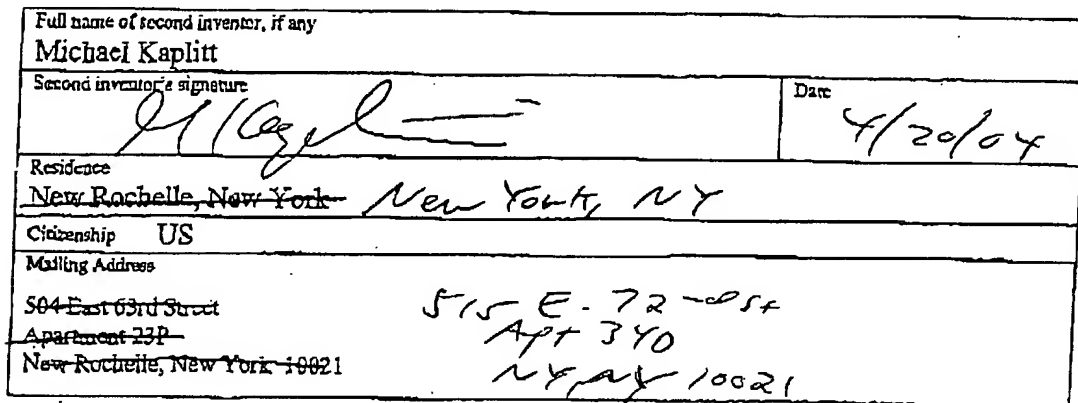 Full name of second inventor, if any
Michael Kaplitt
Second inventor's signature
Date
4/20/04
Residence
New Rochelle, New York New York, NY
Citizenship US
Mailing Address
504 East 63rd Street 515 E. 72nd St
Apartment 23P Apt 340
New Rochelle, New York 10021 NY, NY 10021